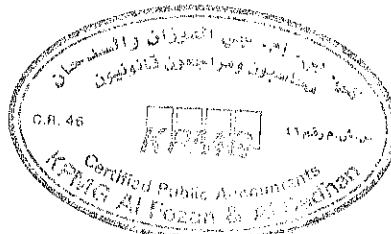 كي بي إم جي الفوزان والسدحان
محاسبون ومراجعون قانونيون
C.R. 46
س.ت رقم ٤٦
KPMG
Certified Public Accountants
KPMG Al Fozan & Al Sadhan